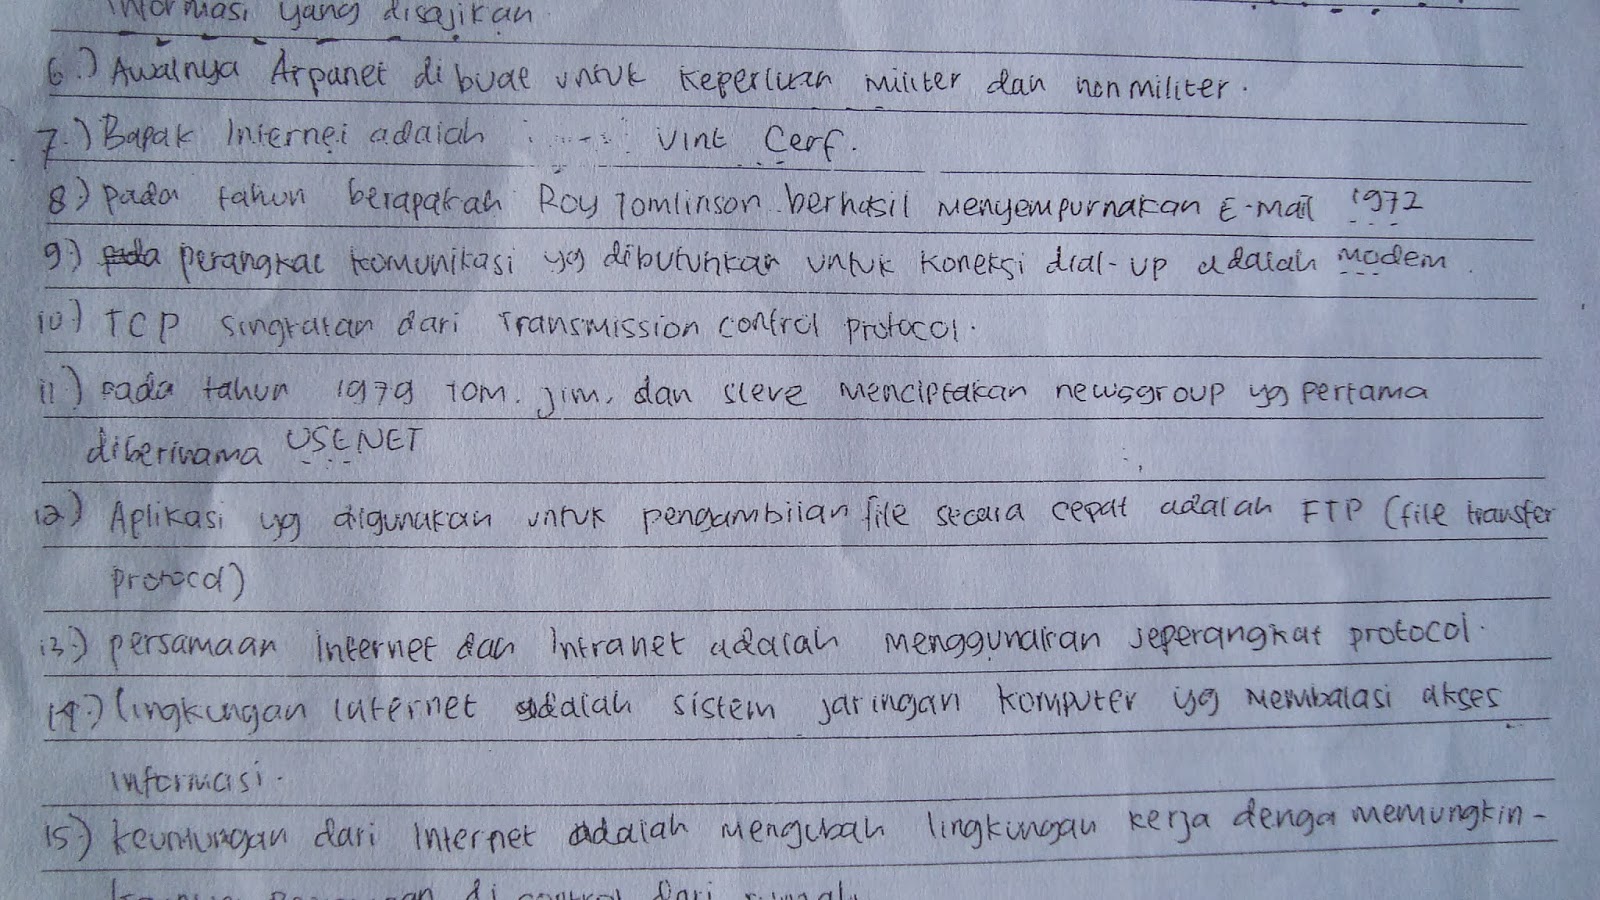 informasi yang disajikan
6.) Awalnya Arpanet di buat untuk keperluan militer dan non militer.
7.) Bapak Internet adalah ...... Vint Cerf.
8.) pada tahun berapakah Roy Tomlinson berhasil menyempurnakan E-mail 1972
9.) pada perangkat komunikasi yg dibutuhkan untuk koneksi dial-up adalah modem.
10.) TCP singkatan dari Transmission control protocol.
11.) pada tahun 1979 Tom, jim, dan steve menciptakan newsgroup yg pertama
diberinama USENET
12.) Aplikasi yg digunakan untuk pengambilan file secara cepat adalah FTP (file transfer
protocol)
13.) persamaan internet dan Intranet adalah menggunakan seperangkat protocol.
14.) lingkungan internet adalah sistem jaringan komputer yg membatasi akses
informasi.
15.) keuntungan dari Internet adalah mengubah lingkungan kerja denga memungkin-
di control dari rumah